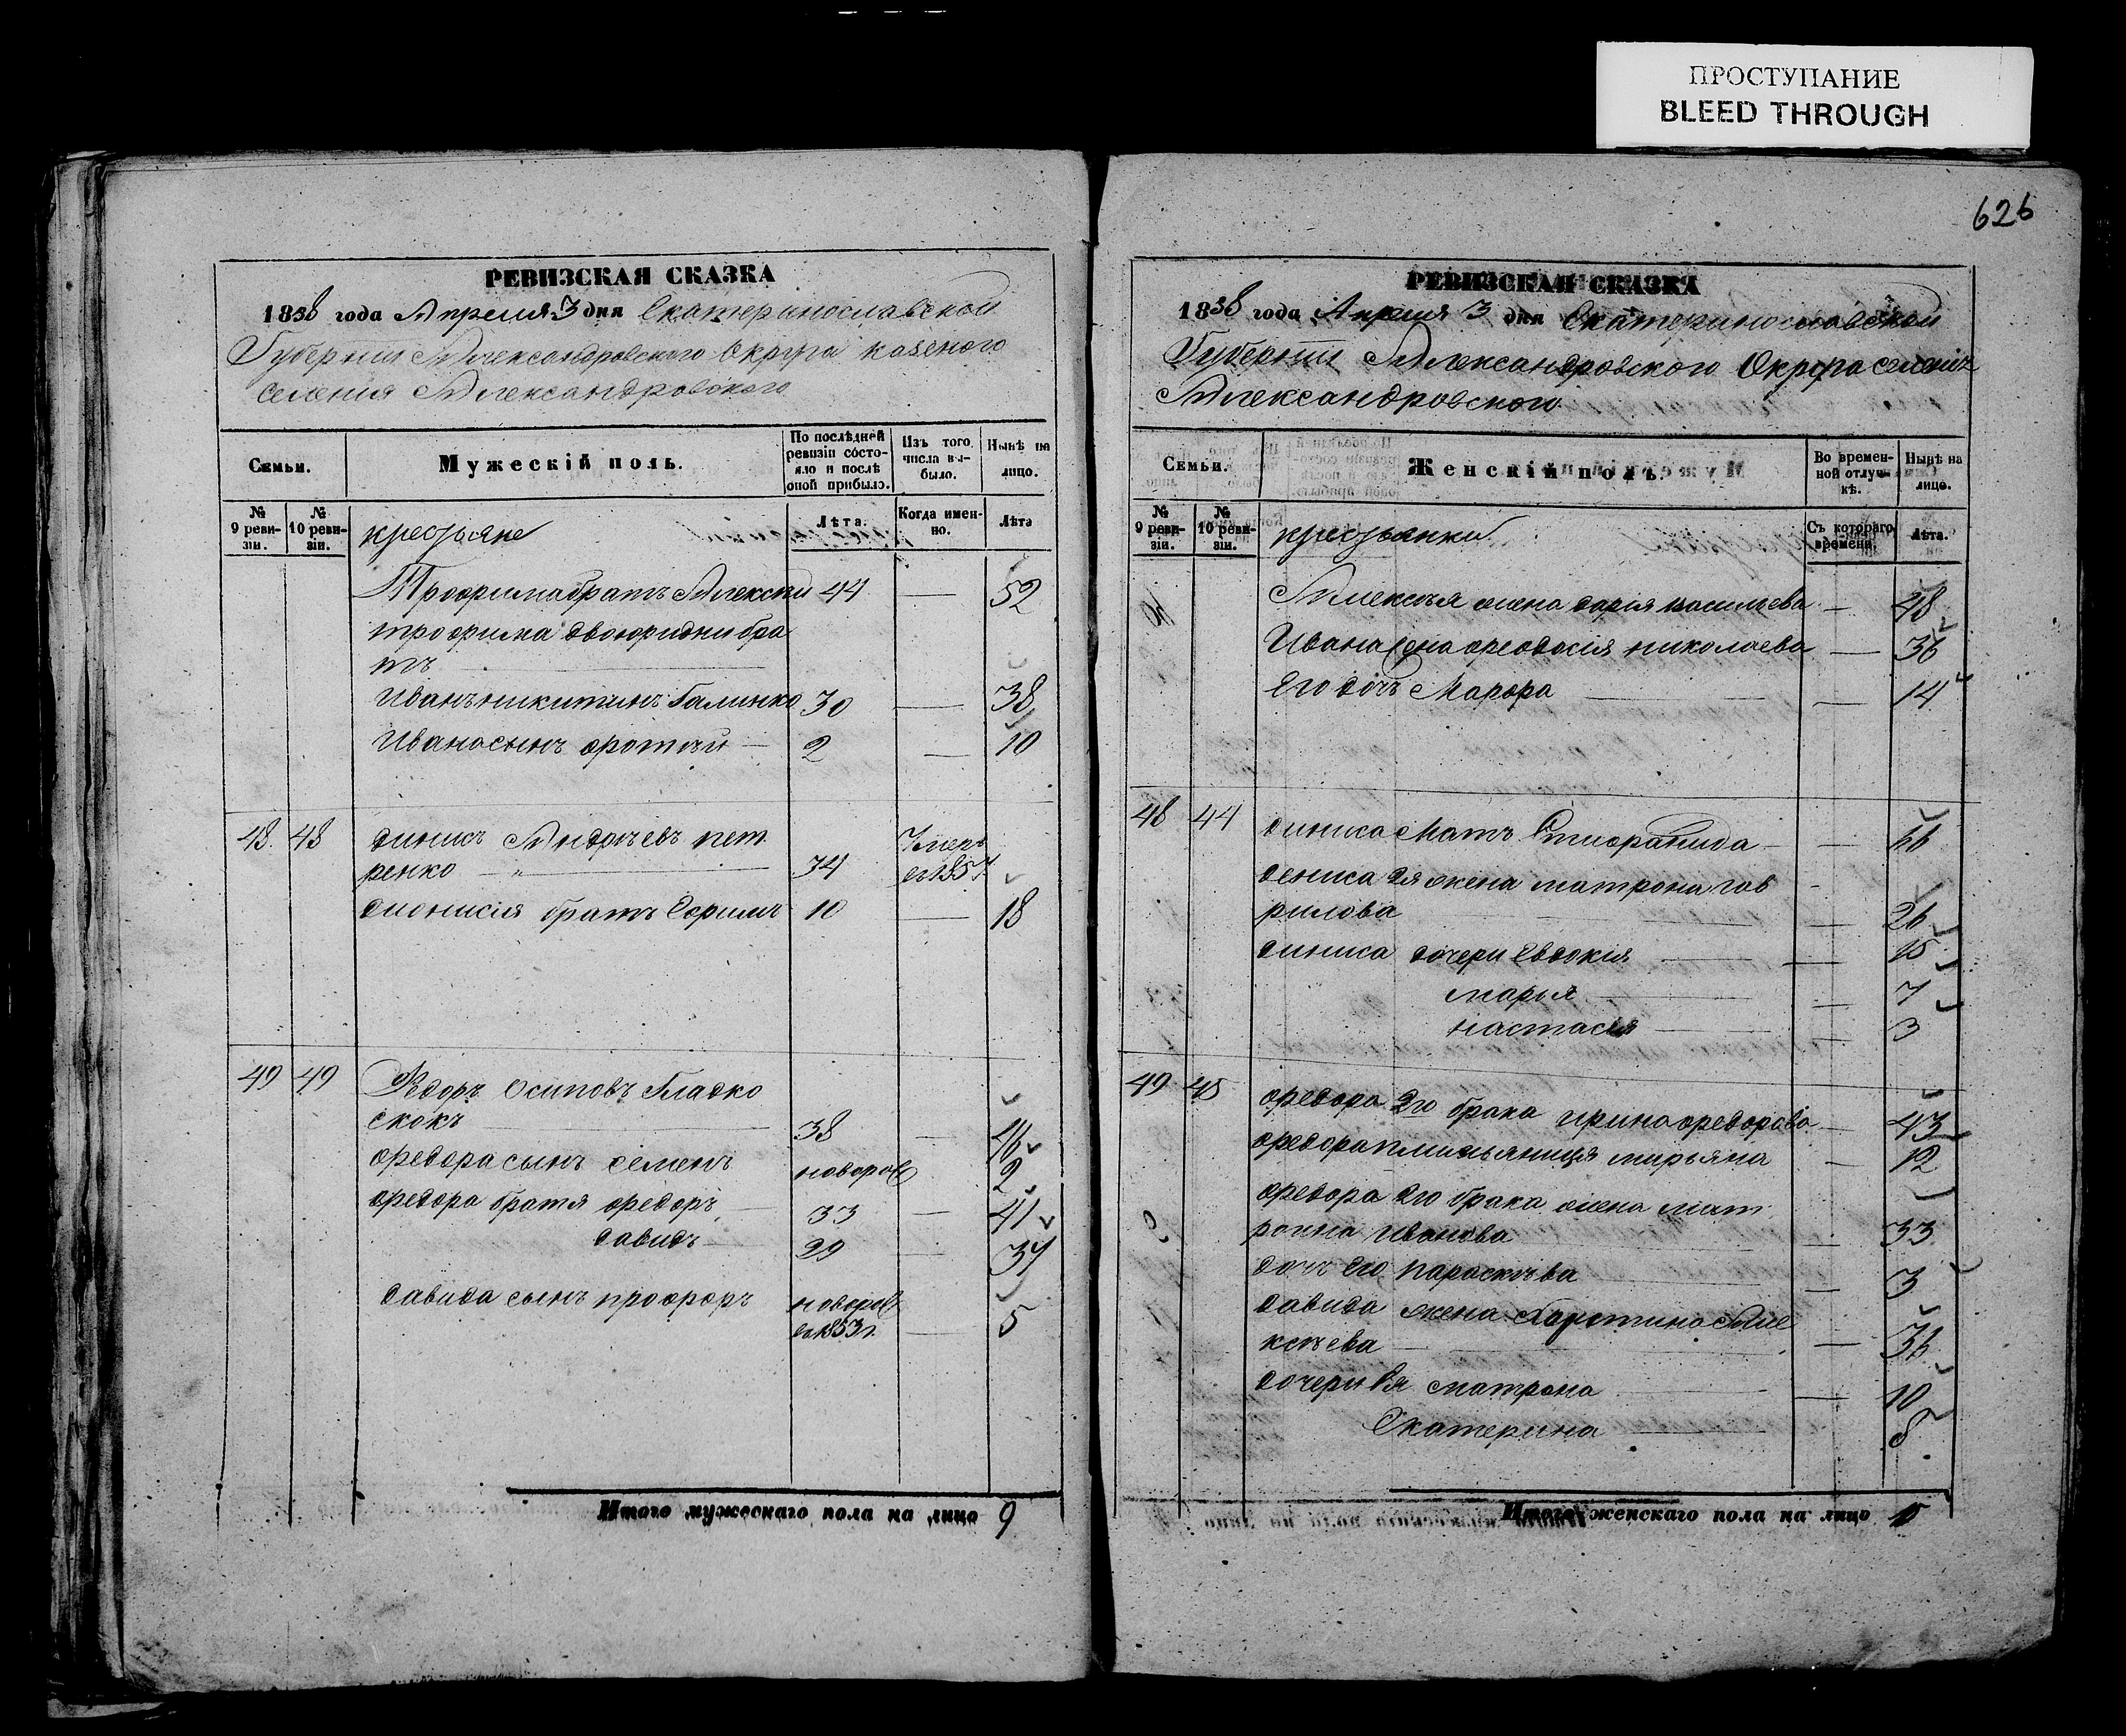 ПРОСТУПАНИЕ
BLEED THROUGH
626
РЕВИЗСКАЯ СКАЗКА
1858 года Апреля 3 дня Екатеринославской
Губернии Александровского Округа казеного
селения Александровского
Семьи.
Мужескій полъ.
По послѣдней ревизіи состояло и послѣ оной прибыло.
Изъ того числа выбыло.
Нынѣ на лицо.
№ 9 ревизіи.
№ 10 ревизіи.
крестьяне
Лѣта.
Когда именно.
Лѣта
Трофима братъ Алексѣй 44 — 52
трофима двоюридни бра
тъ
Иванъ никитинъ Галинко 30 — 38
Ивана сынъ фотѣй — 2 — 10
48. 48 динисъ Андрѣевъ пет
ренко — „ — 34 Умеръ въ 1857
дионисія братъ Ефимъ 10 — 18
49 49 Федоръ Осиповъ Гладко
скокъ 38 — 46
федора сынъ семенъ новорож 2
федора братя федоръ — 33 — 41
давидъ — 29 — 37
давида сынъ профоръ новорож
въ 1853 г. — 5
Итого мужескаго пола на лицо 9
РЕВИЗСКАЯ СКАЗКА
1858 года Апреля 3 дня Екатеринославской
Губернии Александровского Округа селенія
Александровского
Семьи.
Женскій полъ.
Во временной отлучкѣ.
Нынѣ на лицо.
№ 9 ревизіи.
№ 10 ревизіи.
крестьянки
Съ котораго времени.
Лѣта.
Алексѣя жена дарія василиева — 48
Ивана жена феодосія николаева — 36
Его дочъ Марфа — 14
48 44 диниса Матъ — 66
дениса 2я жена матрона гав
рилова — 26
диниса дочери Евдокия — 15
марья — 7
настасія — 3
49 45 федора 2го брака ирина федорова — 43
федора племяница мирьяна — 12
федора 2го брака жена мат
рона Иванова — 33
дочъ Его параскѣва — 3
давида жена Харитина Але
ксѣева — 36
дочери Ея матрона — 10
Екатерина — 8
Итого женскаго пола на лицо 15